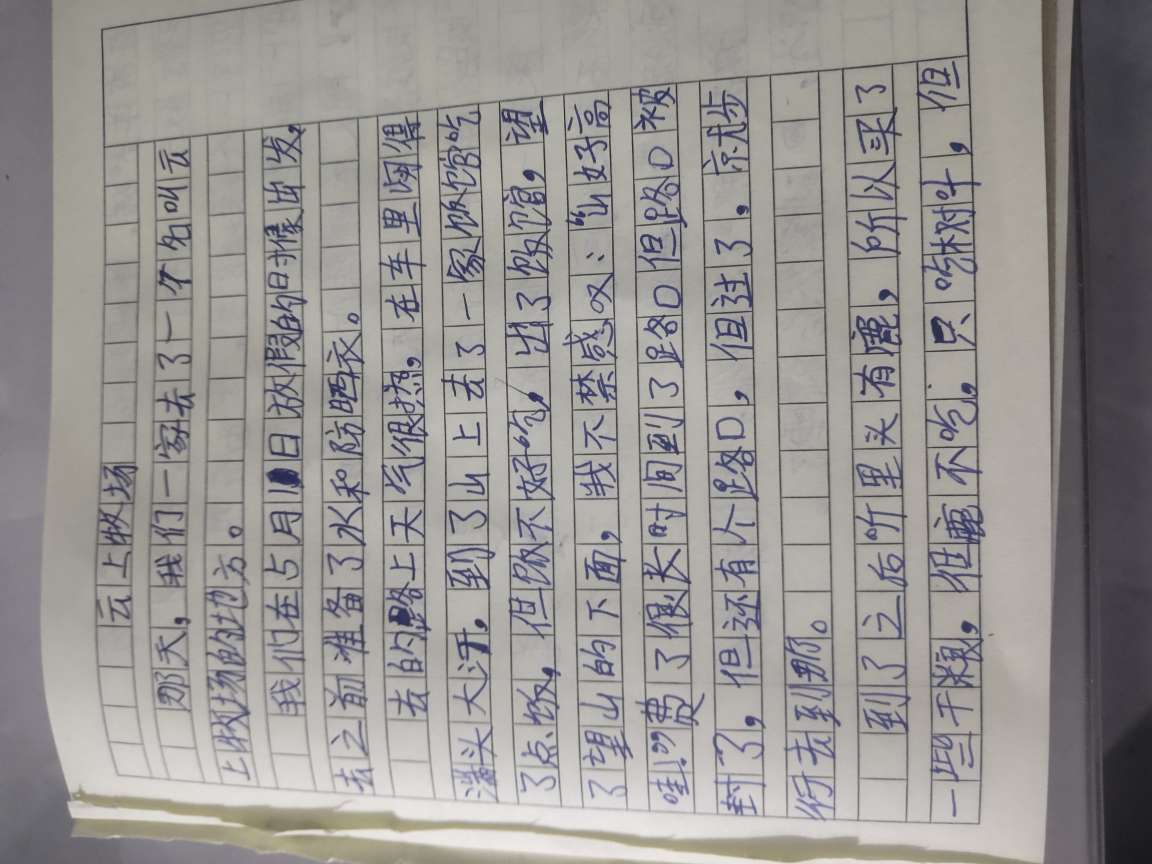 云上牧场
那天，我们一家去了一个名叫云
上牧场的地方。
我们在5月1日放假的时候出发，
去之前准备了水和防晒衣。
去的路上天气很热，在车里闷得
满头大汗。到了山上去了一家饭馆吃
了点饭，但饭不好吃，出了饭馆，望
了望山的下面，我不禁感叹：“山好高
哇！”费了很长时间到了路口但路口被
封了，但还有个路口，但过了，就步
行去到那。
到了之后听里头有鹿，所以买了
一些干粮，但鹿不吃，只吃树叶，但